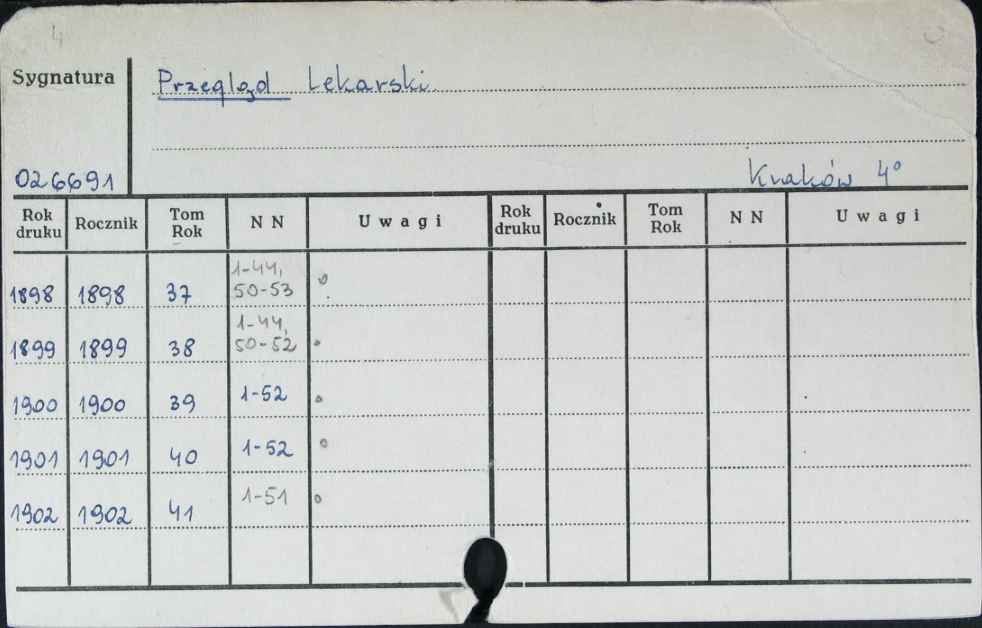 4
Sygnatura Przegląd Lekarski
026691 Kraków 4°
Rok druku Rocznik Tom Rok N N Uwagi Rok druku Rocznik Tom Rok N N Uwagi
1898 1898 37 1-44, 50-53
1899 1899 38 1-44, 50-52
1900 1900 39 1-52
1901 1901 40 1-52
1902 1902 41 1-51